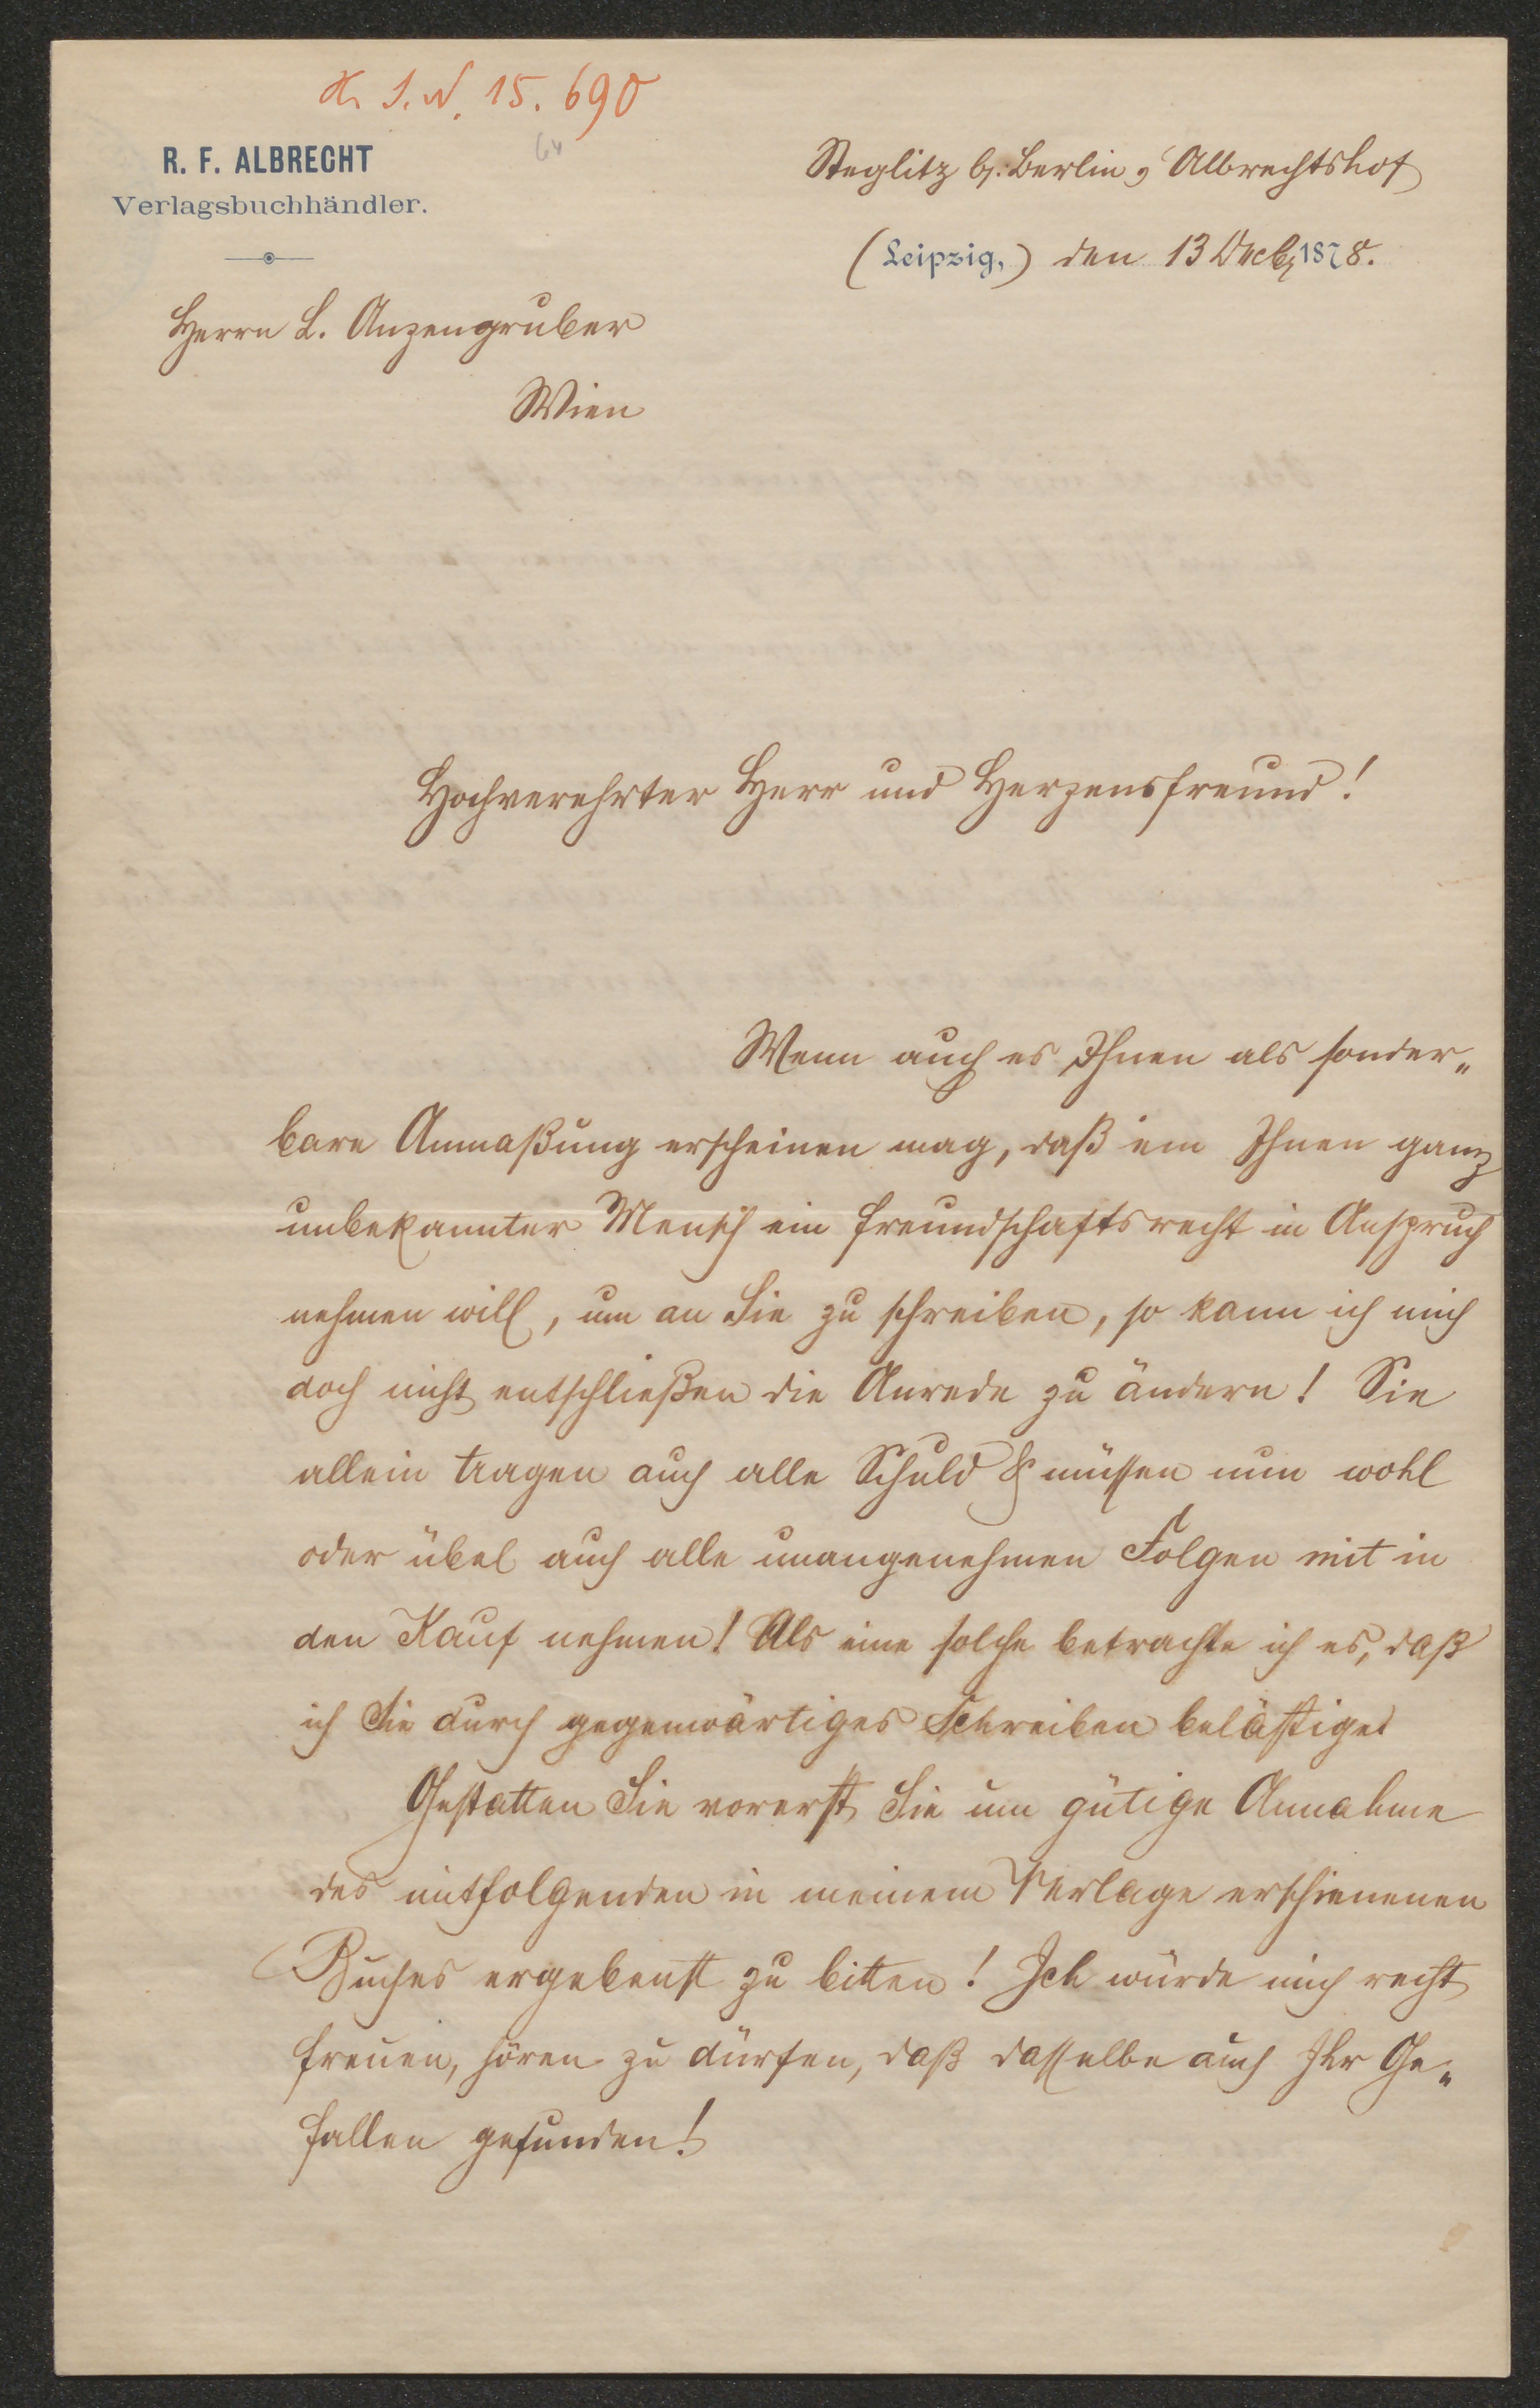 H. I. N. 15.690
64
R. F. ALBRECHT
Verlagsbuchhändler.
Steglitz b. Berlin, Albrechtshof
(Leipzig,) den 13 Decbr 1878.
Herrn L. Anzengruber
Wien
Hochverehrter Herr und Herzensfreund!
Wenn auch es Ihnen als sonder„
bare Anmaßung erscheinen mag, daß ein Ihnen ganz
unbekannter Mensch ein Freundschaftsrecht in Anspruch
nehmen will, um an Sie zu schreiben, so kann ich mich
doch nicht entschließen die Anrede zu ändern! Sie
allein tragen auch alle Schuld & müssen nun wohl
oder übel auch alle unangenehmen Folgen mit in
den Kauf nehmen! Als eine solche betrachte ich es, daß
ich Sie durch gegenwärtiges Schreiben belästige!
Gestatten Sie vorerst Sie um gütige Annahme
des mitfolgenden in meinem Verlage erschienenen
Buches ergebenst zu bitten! Ich würde mich recht
freuen, hören zu dürfen, daß dasselbe auch Ihr Ge„
fallen gefunden!